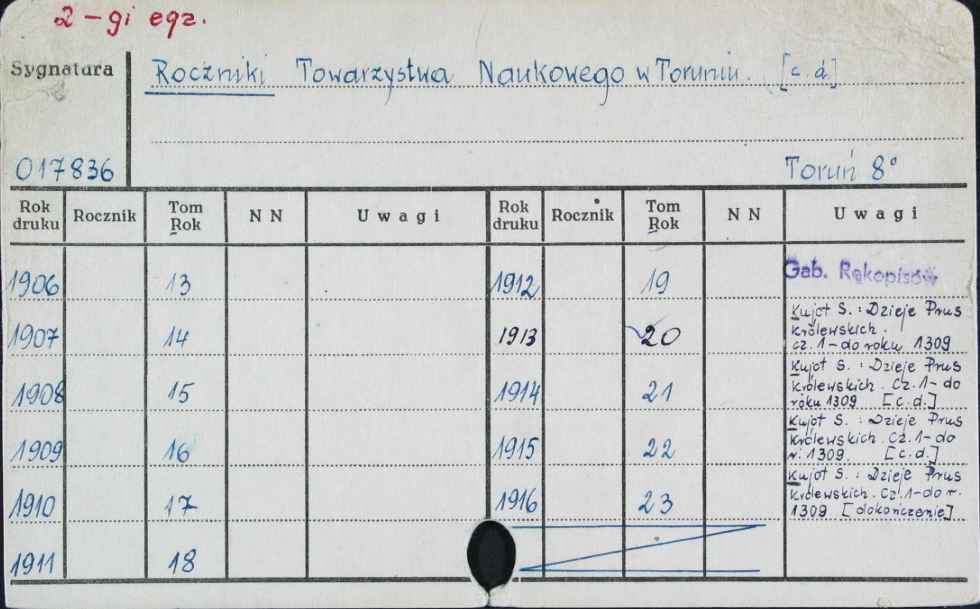 2-gi egz.
Sygnatura
Roczniki Towarzystwa Naukowego w Toruniu. [c.d.]
017836
Toruń 8°
Rok druku Rocznik Tom Rok NN Uwagi Rok druku Rocznik Tom Rok NN Uwagi
1906 13 1912 19 Gab. Rękopisów
1907 14 1913 20 Kujot S. : Dzieje Prus
królewskich.
cz. 1 - do roku 1309
1908 15 1914 21 Kujot S. : Dzieje Prus
królewskich. Cz. 1 - do
roku 1309 [c.d.]
1909 16 1915 22 Kujot S. : Dzieje Prus
królewskich. Cz. 1 - do
r. 1309. [c.d.]
1910 17 1916 23 Kujot S. : Dzieje Prus
królewskich. Cz. 1 - do r.
1309 [dokończenie]
1911 18